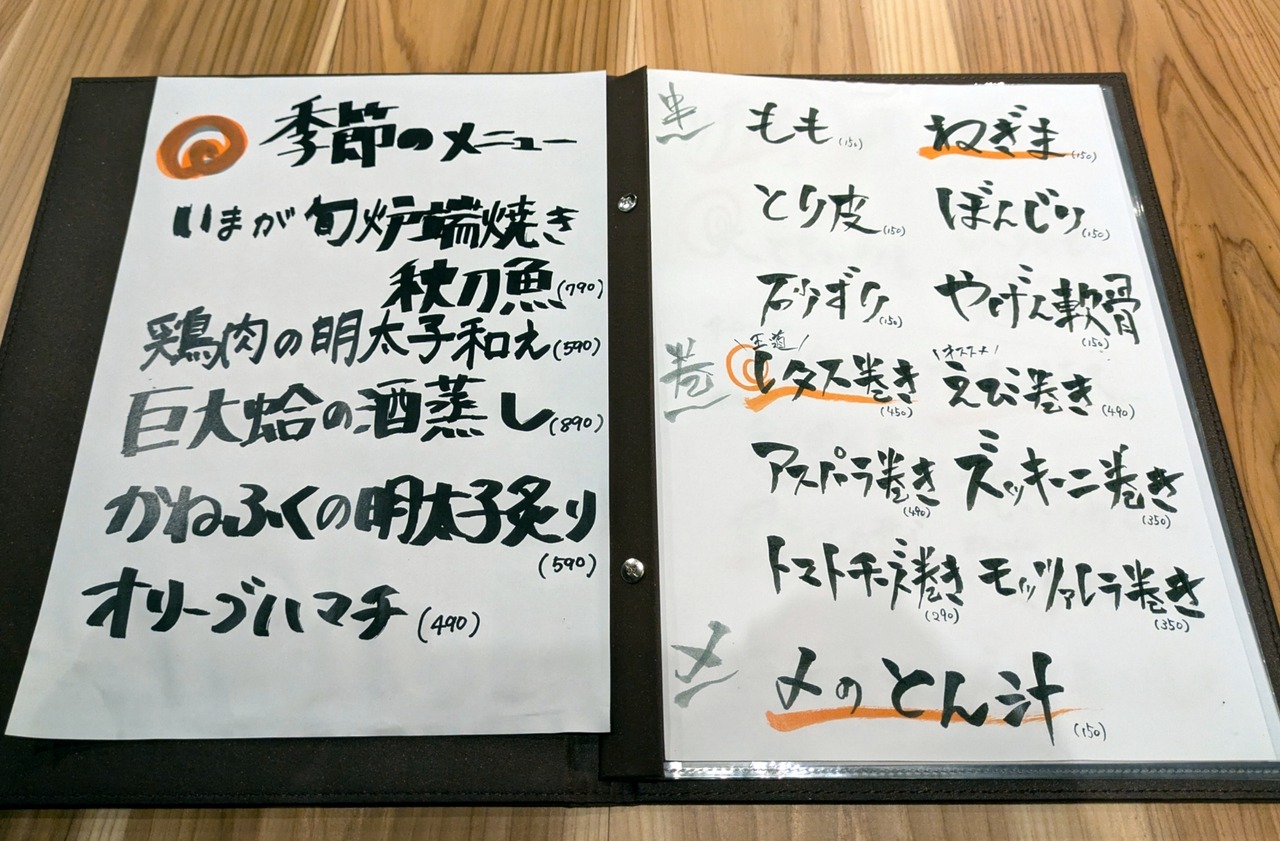 季節のメニュー
いまが旬炉端焼き
秋刀魚(790)
鶏肉の明太子和え(590)
巨大蛤の酒蒸し(890)
かねふくの明太子炙り
(590)
オリーブハマチ(490)
串
もも(150) ねぎま(150)
とり皮(150) ぼんじり(150)
砂ずり(150) やげん軟骨(150)
巻
王道 オススメ!
レタス巻き(450) えび巻き(490)
アスパラ巻き(490) ズッキーニ巻き(350)
トマトチーズ巻き(290) モッツァレラ巻き(350)
〆
〆のとん汁(150)